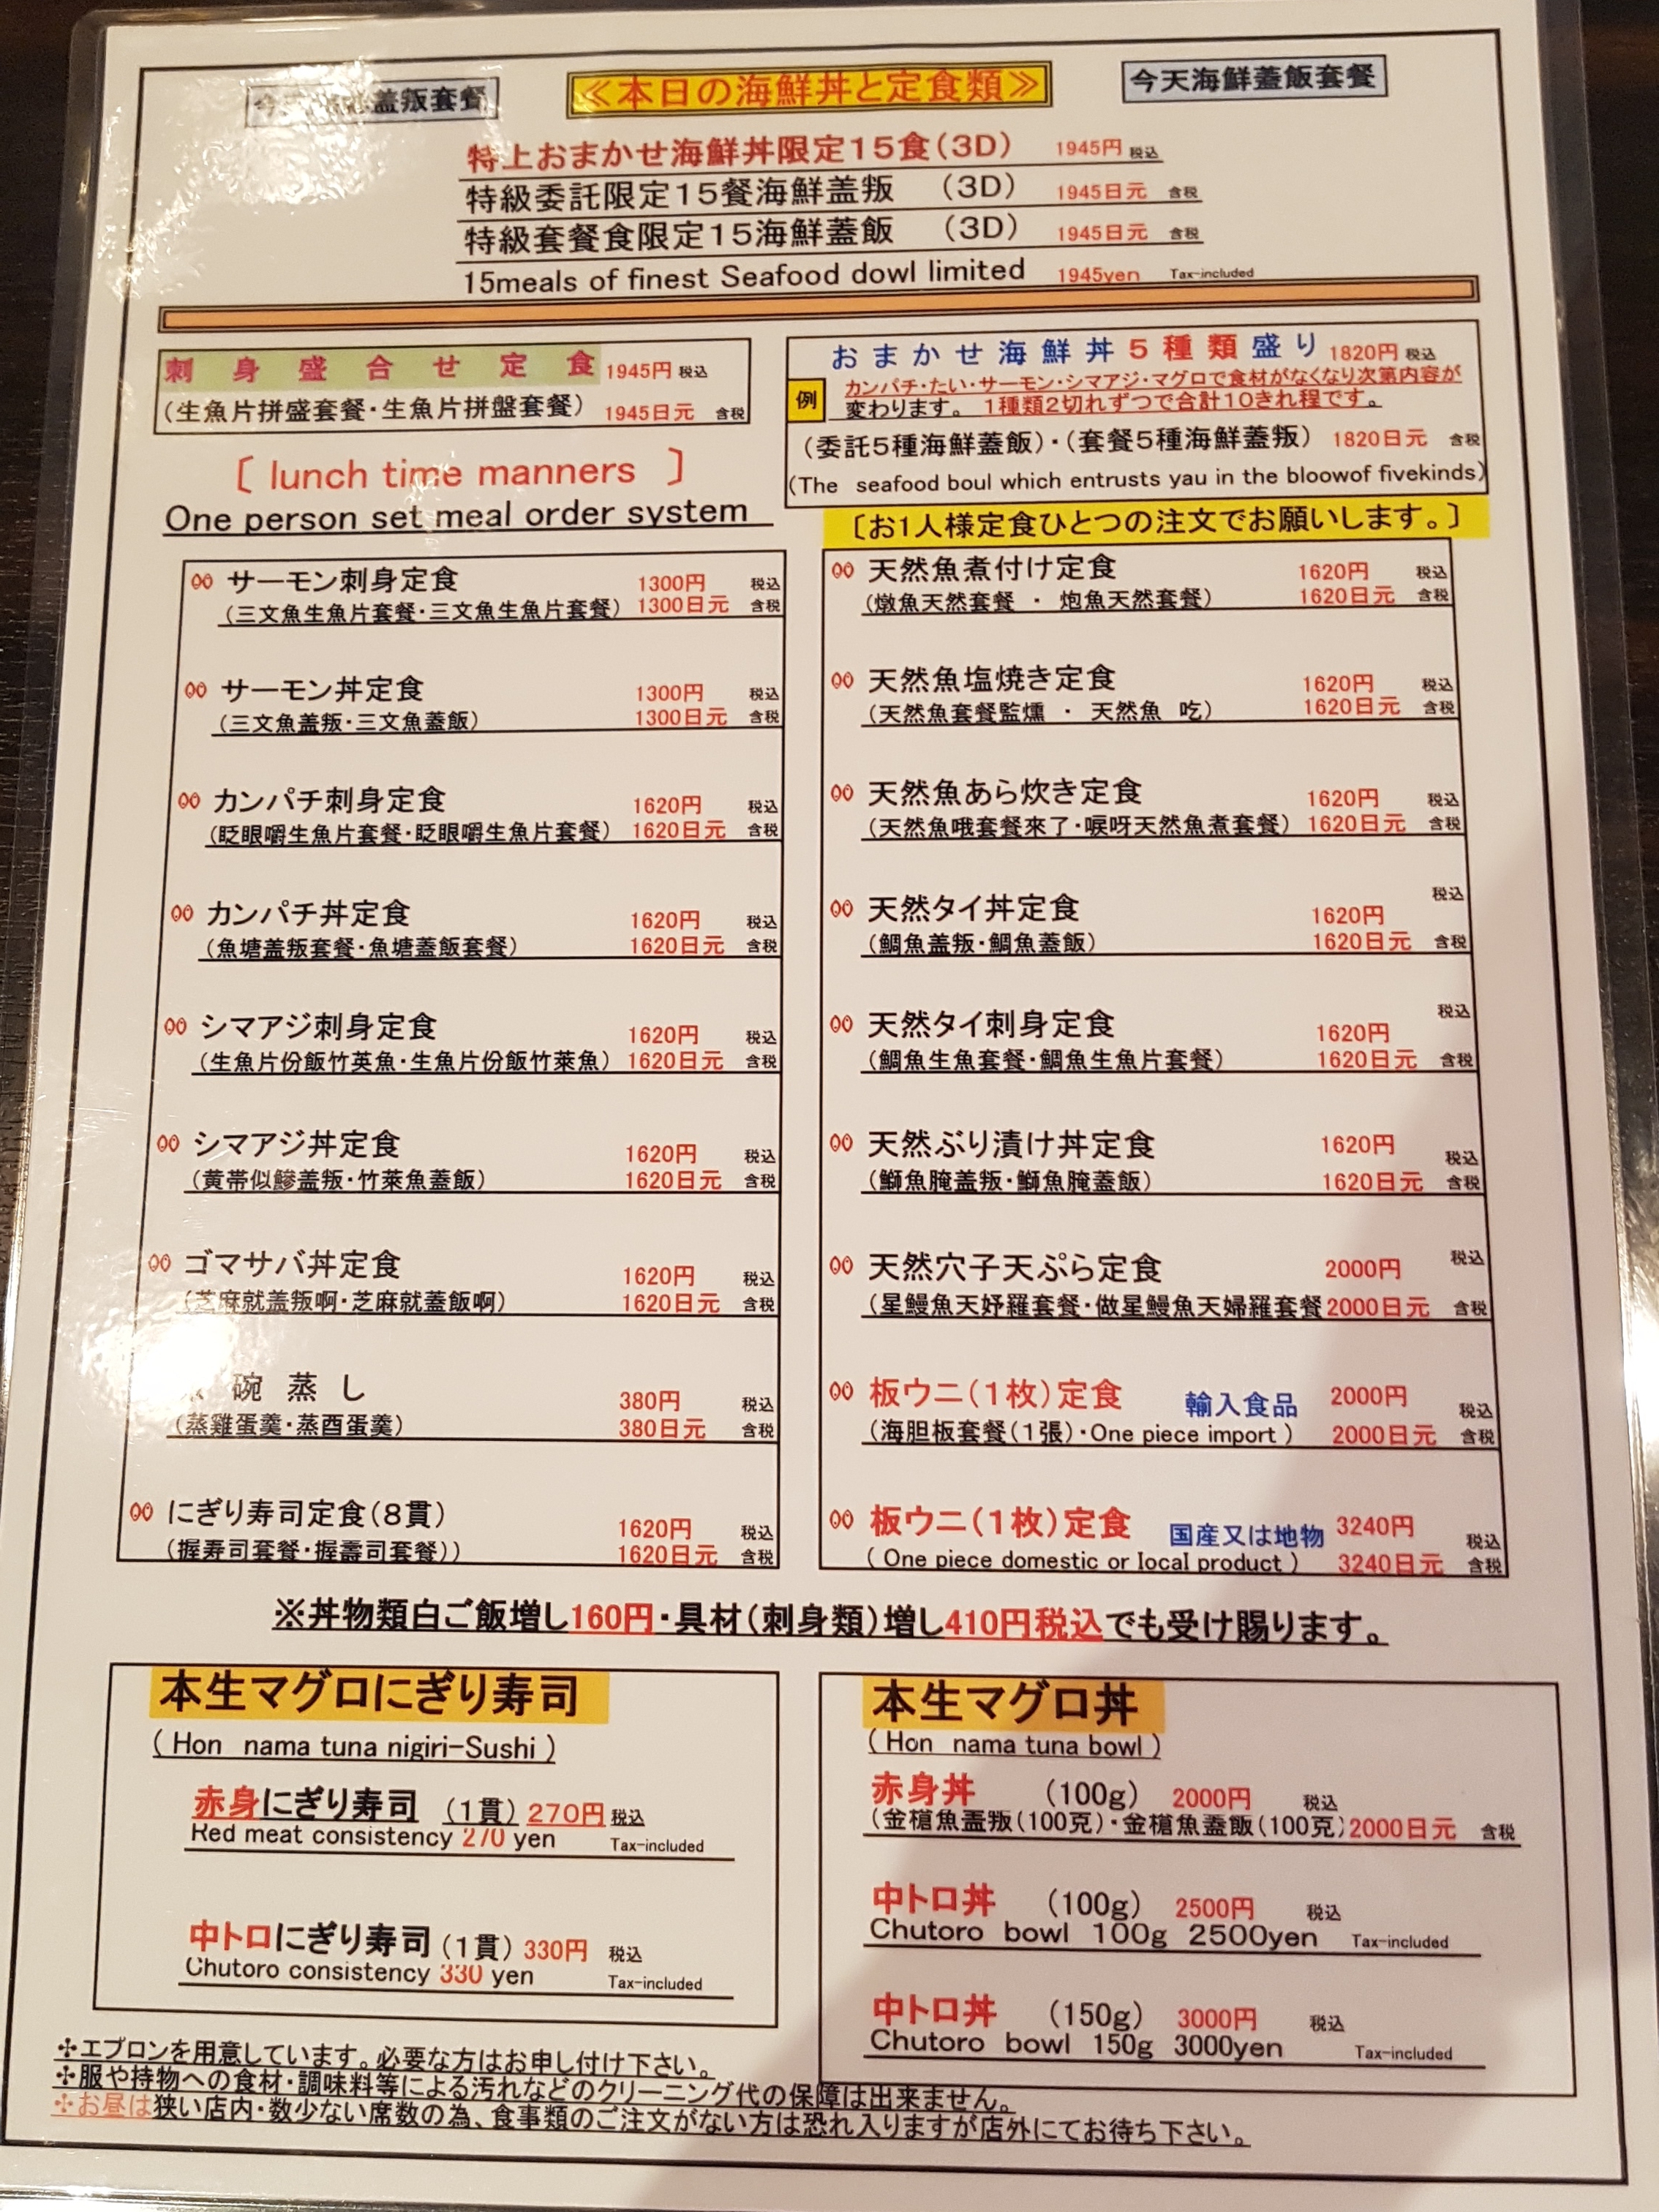 ≪本日の海鮮丼と定食類≫
今天海鮮蓋飯套餐
特上おまかせ海鮮丼限定15食(3D) 1945円 税込
特級委託限定15餐海鮮盖叛 (3D) 1945日元 含税
特級套餐食限定15海鮮蓋飯 (3D) 1945日元 含税
15meals of finest Seafood dowl limited 1945yen Tax-included
刺身盛合せ定食 1945円 税込
(生魚片拼盛套餐・生魚片拼盤套餐) 1945日元 含税
〔 lunch time manners 〕
One person set meal order system
おまかせ海鮮丼5種類盛り 1820円 税込
例
カンパチ・たい・サーモン・シマアジ・マグロで食材がなくなり次第内容が
変わります。 1種類2切れずつで合計10きれ程です。
(委託5種海鮮蓋飯)・(套餐5種海鮮蓋叛) 1820日元 含税
(The seafood boul which entrusts yau in the bloowof fivekinds)
〔お1人様定食ひとつの注文でお願いします。〕
サーモン刺身定食 1300円 税込
(三文魚生魚片套餐・三文魚生魚片套餐) 1300日元 含税
サーモン丼定食 1300円 税込
(三文魚盖叛・三文魚蓋飯) 1300日元 含税
カンパチ刺身定食 1620円 税込
(眨眼嚼生魚片套餐・眨眼嚼生魚片套餐) 1620日元 含税
カンパチ丼定食 1620円 税込
(魚塘盖叛套餐・魚塘蓋飯套餐) 1620日元 含税
シマアジ刺身定食 1620円 税込
(生魚片份飯竹英魚・生魚片份飯竹莱魚) 1620日元 含税
シマアジ丼定食 1620円 税込
(黄帯似鰺盖叛・竹莱魚蓋飯) 1620日元 含税
ゴマサバ丼定食 1620円 税込
(芝麻就盖叛啊・芝麻就蓋飯啊) 1620日元 含税
碗蒸し 380円 税込
(蒸雞蛋羹・蒸酉蛋羹) 380日元 含税
にぎり寿司定食(8貫) 1620円 税込
(握寿司套餐・握壽司套餐)) 1620日元 含税
天然魚煮付け定食 1620円 税込
(燉魚天然套餐 ・ 炮魚天然套餐) 1620日元 含税
天然魚塩焼き定食 1620円 税込
(天然魚套餐監燻 ・ 天然魚 吃) 1620日元 含税
天然魚あら炊き定食 1620円 税込
(天然魚哦套餐來了・唳呀天然魚煮套餐) 1620日元 含税
天然タイ丼定食 1620円 税込
(鯛魚盖叛・鯛魚蓋飯) 1620日元 含税
天然タイ刺身定食 1620円 税込
(鯛魚生魚套餐・鯛魚生魚片套餐) 1620日元 含税
天然ぶり漬け丼定食 1620円 税込
(鰤魚腌盖叛・鰤魚腌蓋飯) 1620日元 含税
天然穴子天ぷら定食 2000円 税込
(星鰻魚天妤羅套餐・做星鰻魚天婦羅套餐 2000日元 含税
板ウニ(1枚)定食 輸入食品 2000円 税込
(海胆板套餐(1張)・One piece import ) 2000日元 含税
板ウニ(1枚)定食 国産又は地物 3240円 税込
( One piece domestic or local product ) 3240日元 含税
※丼物類白ご飯増し160円・具材(刺身類)増し410円税込でも受け賜ります。
本生マグロにぎり寿司
( Hon nama tuna nigiri-Sushi )
赤身にぎり寿司 (1貫) 270円 税込
Red meat consistency 270 yen Tax-included
中トロにぎり寿司 (1貫) 330円 税込
Chutoro consistency 330 yen Tax-included
本生マグロ丼
( Hon nama tuna bowl )
赤身丼 (100g) 2000円 税込
(金槍魚盖叛(100克)・金槍魚蓋飯(100克) 2000日元 含税
中トロ丼 (100g) 2500円 税込
Chutoro bowl 100g 2500yen Tax-included
中トロ丼 (150g) 3000円 税込
Chutoro bowl 150g 3000yen Tax-included
✣エプロンを用意しています。必要な方はお申し付け下さい。
✣服や持物への食材・調味料等による汚れなどのクリーニング代の保障は出来ません。
✣お昼は狭い店内・数少ない席数の為、食事類のご注文がない方は恐れ入りますが店外にてお待ち下さい。